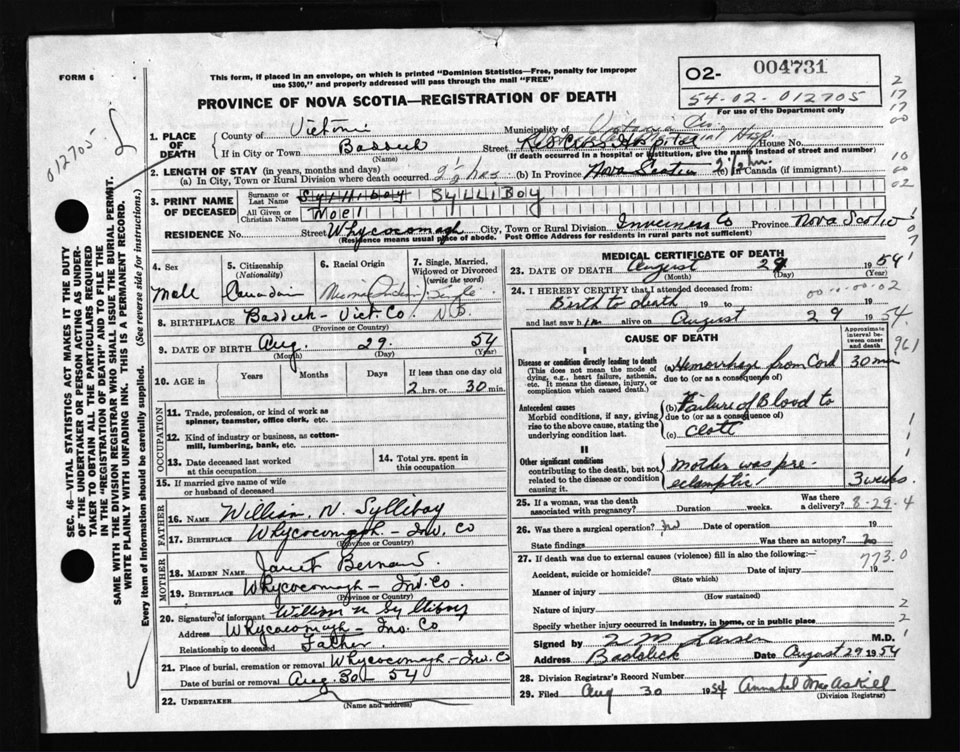 FORM 6
This form, if placed in an envelope, on which is printed "Dominion Statistics—Free, penalty for improper
use $300," and properly addressed will pass through the mail "FREE"
PROVINCE OF NOVA SCOTIA—REGISTRATION OF DEATH
O2- 004731
54-02-012705
For use of the Department only
012705
1. PLACE OF DEATH
County of Victoria Municipality of Victoria Co.
If in City or Town Baddeck Street Hospital House No.
(Name) (If death occurred in a hospital or institution, give the name instead of street and number)
2. LENGTH OF STAY (in years, months and days)
(a) In City, Town or Rural Division where death occurred 2½ hrs (b) In Province Nova Scotia 2½ hr. (c) In Canada (if immigrant)
3. PRINT NAME OF DECEASED
Surname or Last Name SYLLIBOY
All Given or Christian Names Moel
RESIDENCE No. Street Whycocomagh City, Town or Rural Division Inverness Co Province Nova Scotia
(Residence means usual place of abode. Post Office Address for residents in rural parts not sufficient)
4. Sex Male
5. Citizenship (Nationality) Canadian
6. Racial Origin Indian
7. Single, Married, Widowed or Divorced (write the word) Single
8. BIRTHPLACE Baddeck - Vict Co. N.S.
(Province or Country)
9. DATE OF BIRTH Aug. 29. 54
(Month) (Day) (Year)
10. AGE in Years Months Days If less than one day old
2 hrs. or 30 min.
OCCUPATION
11. Trade, profession, or kind of work as
spinner, teamster, office clerk, etc.
12. Kind of industry or business, as cotton-
mill, lumbering, bank, etc.
13. Date deceased last worked
at this occupation
14. Total yrs. spent in
this occupation
15. If married give name of wife
or husband of deceased
FATHER
16. NAME William N. Sylliboy
17. BIRTHPLACE Whycocomagh. Inv. Co
(Province or Country)
MOTHER
18. MAIDEN NAME Janet Bernard
19. BIRTHPLACE Whycocomagh - Inv. Co.
(Province or Country)
20. Signature of informant William N Sylliboy
Address Whycocomagh - Inv. Co
Relationship to deceased Father
21. Place of burial, cremation or removal Whycocomagh - Inv. Co
Date of burial or removal Aug. 30 - 54
22. UNDERTAKER
(Name and address)
MEDICAL CERTIFICATE OF DEATH
23. DATE OF DEATH August 29 1954
(Month) (Day) (Year)
24. I HEREBY CERTIFY that I attended deceased from:
Birth to death 19 to 19
and last saw him alive on August 29 1954.
CAUSE OF DEATH
Approximate interval between onset and death
I
Disease or condition directly leading to death
(This does not mean the mode of
dying, e.g., heart failure, asthenia,
etc. It means the disease, injury, or
complication which caused death.)
(a) Hemorrhage from Cord 30 min
due to (or as a consequence of)
Antecedent causes
Morbid conditions, if any, giving
rise to the above cause, stating the
underlying condition last.
(b) Failure of Blood to
due to (or as a consequence of)
(c) clott
II
Other significant conditions
contributing to the death, but not
related to the disease or condition
causing it.
Mother was pre
eclamptic 3 weeks.
25. If a woman, was the death
associated with pregnancy? Duration weeks. Was there
a delivery? 8-29-4
26. Was there a surgical operation? no Date of operation 19
State findings Was there an autopsy? no
27. If death was due to external causes (violence) fill in also the following:—
773.0
Accident, suicide or homicide? Date of injury 19
(State which)
Manner of injury
(How sustained)
Nature of injury
Specify whether injury occurred in industry, in home, or in public place
Signed by Larsen M.D.
Address Baddeck Date August 29 1954
28. Division Registrar's Record Number
29. Filed Aug 30 1954 Annabel MacAskill
(Division Registrar)
SEC. 46—VITAL STATISTICS ACT MAKES IT THE DUTY
OF THE UNDERTAKER OR PERSON ACTING AS UNDER-
TAKER TO OBTAIN ALL THE PARTICULARS REQUIRED
IN THE "REGISTRATION OF DEATH" AND TO FILE THE
SAME WITH THE DIVISION REGISTRAR WHO SHALL ISSUE THE BURIAL PERMIT.
WRITE PLAINLY WITH UNFADING INK. THIS IS A PERMANENT RECORD.
Every item of Information should be carefully supplied. (See reverse side for instructions.)